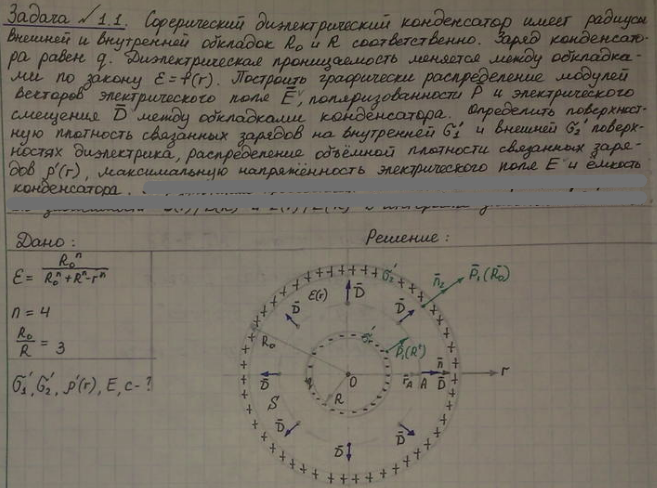 Задача №1.1. Сферический диэлектрический конденсатор имеет радиусы
внешней и внутренней обкладок R₀ и R соответственно. Заряд конденсато-
ра равен q. Диэлектрическая проницаемость меняется между обкладка-
ми по закону ε=f(r). Построить графически распределение модулей
векторов электрического поля E̅, поляризованности P̅ и электрического
смещения D̅ между обкладками конденсатора. Определить поверхност-
ную плотность связанных зарядов на внутренней σ₁' и внешней σ₂' поверх-
ностях диэлектрика, распределение объёмной плотности связанных заря-
дов ρ'(r), максимальную напряжённость электрического поля E и ёмкость
конденсатора.
Дано:
Решение:
ε = R₀ⁿ / (R₀ⁿ+Rⁿ-rⁿ)
n = 4
R₀/R = 3
σ₁', σ₂', ρ'(r), E, c - ?
σ₂'
n̅₂
P̅₁(R₀)
ε(r)
D̅
D̅
D̅
R₀
P̅₁(R)
D̅
R
O
r̅_A
A
n̅
D̅
r
S
D̅
D̅
D̅